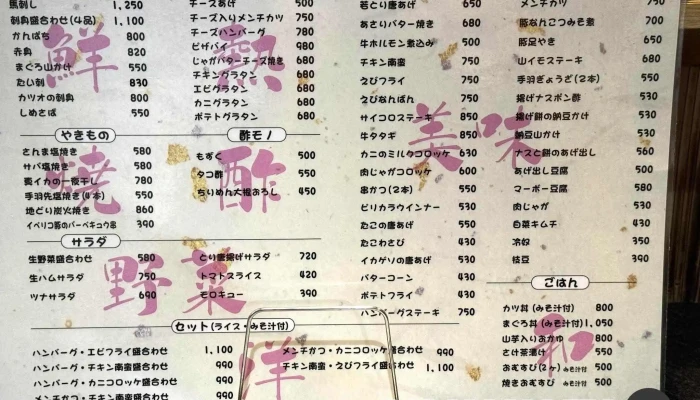 馬刺し 1,250
刺身盛合わせ(4品) 1,100
かんぱち 800
赤身 820
まぐろ山かけ 550
たい刺 830
カツオの刺身 800
しめさば 550
やきもの
さんま塩焼き 580
サバ塩焼き 580
真イカの一夜干し 780
手羽先塩焼き(4本) 550
地どり炭火焼き 860
イベリコ豚のバーベキュウ串 390
サラダ
生野菜盛合わせ 580
生ハムサラダ 750
ツナサラダ 690
とり唐揚げサラダ 720
トマトスライス 420
モロキュー 390
チーズあげ 500
チーズ入りメンチカツ 750
チーズハンバーグ 780
ピザパイ 980
じゃがバターチーズ焼き 680
チキングラタン 680
エビグラタン 680
カニグラタン 680
ポテトグラタン 680
酢モノ
もずく 500
タコ酢 550
ちりめん大根おろし 450
若どり唐あげ 650
あさりバター焼き 680
牛ホルモン煮込み 500
チキン南蛮 750
えびフライ 750
えびなんばん 750
サイコロステーキ 850
牛タタキ 850
カニのミルクコロッケ 630
肉じゃがコロッケ 600
串かつ(2本) 550
ピリカラウインナー 530
たこの唐あげ 550
たこわさび 430
イカゲソの唐あげ 530
バターコーン 430
ポテトフライ 430
ハンバーグステーキ 750
メンチカツ 750
豚なんこつみそ煮 700
豚足やき 650
山イモステーキ 680
手羽ぎょうざ(2本) 550
揚げナスポン酢 530
揚げ餅の納豆かけ 530
納豆山かけ 530
ナスと餅のあげ出し 560
あげ出し豆腐 500
マーボー豆腐 580
肉じゃが 530
白菜キムチ 430
冷奴 350
枝豆 390
ごはん
カツ丼(みそ汁付) 800
まぐろ丼(みそ汁付) 1,050
山芋入りおかゆ 800
さけ茶漬け 550
おむすび(2ヶ)みそ汁付 500
焼きおむすび みそ汁付 500
セット(ライス・みそ汁付)
ハンバーグ・エビフライ盛合わせ 1,100
ハンバーグ・チキン南蛮盛合わせ 990
ハンバーグ・カニコロッケ盛合わせ 990
メンチかつ・チキン南蛮盛合わせ 990
メンチかつ・カニコロッケ盛合わせ 990
チキン南蛮・えびフライ盛合わせ 1,100
鮮
焼
野菜
熱
酢
美味
洋
和